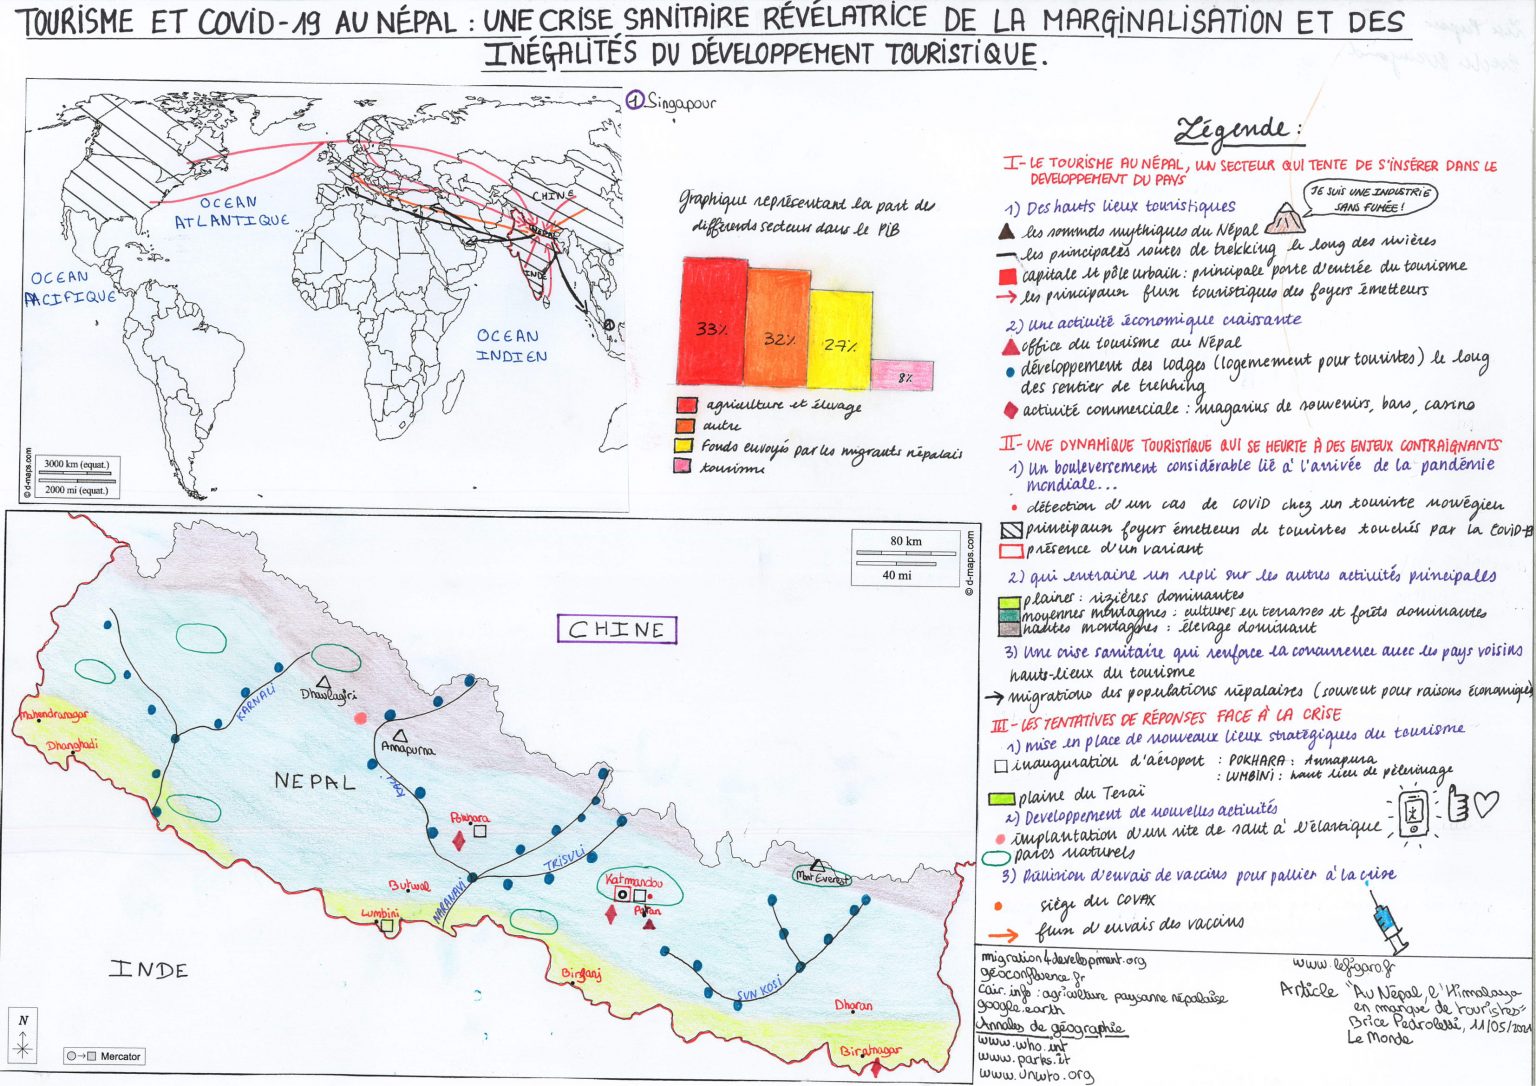 TOURISME ET COVID-19 AU NÉPAL : UNE CRISE SANITAIRE RÉVÉLATRICE DE LA MARGINALISATION ET DES
INÉGALITÉS DU DÉVELOPPEMENT TOURISTIQUE.
① Singapour
OCEAN
ATLANTIQUE
OCEAN
PACIFIQUE
OCEAN
INDIEN
CHINE
NEPAL
INDE
①
3000 km (equat.)
2000 mi (equat.)
© d-maps.com
Graphique représentant la part de
différends secteurs dans le PIB
33%
32%
27%
8%
agriculture et élevage
autre
Fonds envoyés par les migrants népalais
tourisme
Légende :
I- LE TOURISME AU NÉPAL, UN SECTEUR QUI TENTE DE S'INSÉRER DANS LE
DEVELOPPEMENT DU PAYS
JE SUIS UNE INDUSTRIE
SANS FUMÉE !
1) Des hauts lieux touristiques
les sommets mythiques du Népal
les principales routes de trekking le long des rivières
capitale et pôle urbain : principale porte d'entrée du tourisme
les principaux flux touristiques des foyers émetteurs
2) Une activité économique craissante
office du tourisme au Népal
développement des Lodges (logemement pour touristes) le long
des sentier de trekking
activité commerciale : magasins de souvenirs, bars, casino
II- UNE DYNAMIQUE TOURISTIQUE QUI SE HEURTE À DES ENJEUX CONTRAIGNANTS
1) Un bouleversement considérable lié à l'arrivée de la pandémie
mondiale...
détection d'un cas de COVID chez un touriste norvégien
principaux foyers émetteur de touristes touchés par la COVID-19
présence d'un variant
2) qui entraine un repli sur les autres activités principales
plaines : rizières dominantes
moyennes montagnes : cultures en terrasses et forêts dominantes
hautes montagnes : élevage dominant
3) Une crise sanitaire qui renforce la concurrence avec les pays voisins
hauts-lieux du tourisme
migrations des populations népalaises (souvent pour raisons économiques)
III- LES TENTATIVES DE RÉPONSES FACE À LA CRISE
1) mise en place de nouveaux lieux stratégiques du tourisme
inauguration d'aéroport : POKHARA : Annapurna
: LUMBINI : haut lieu de pèlerinage
plaine du Teraï
2) Developpement de nouvelles activités
implantation d'un site de saut à l'élastique
parcs naturels
3) Prévision d'envois de vaccins pour pallier à la crise
siège du COVAX
flux d'envois des vaccins
80 km
40 mi
© d-maps.com
CHINE
NEPAL
INDE
Mahendranagar
Dhanghadi
KARNALI
Dhaulagiri
Annapurna
KALI
Pokhara
TRISULI
NARANAVI
Butwal
Lumbini
Katmandou
Patan
Mont Everest
Birganj
SUN KOSI
Dharan
Biratnagar
N
Mercator
migration4development.org
géoconfluence.fr
cair.info : agriculture paysanne népalaise
google.earth
Annales de géographie
www.who.int
www.parks.it
www.unwto.org
www.lefigaro.fr
Article "Au Népal, l'Himalaya
en manque de touristes"
Brice Pedroletti, 11/05/2021
Le Monde